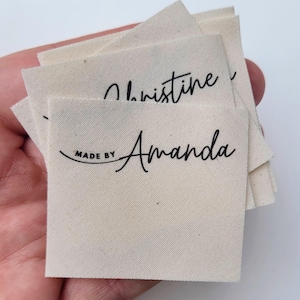 Christine
MADE BY Amanda